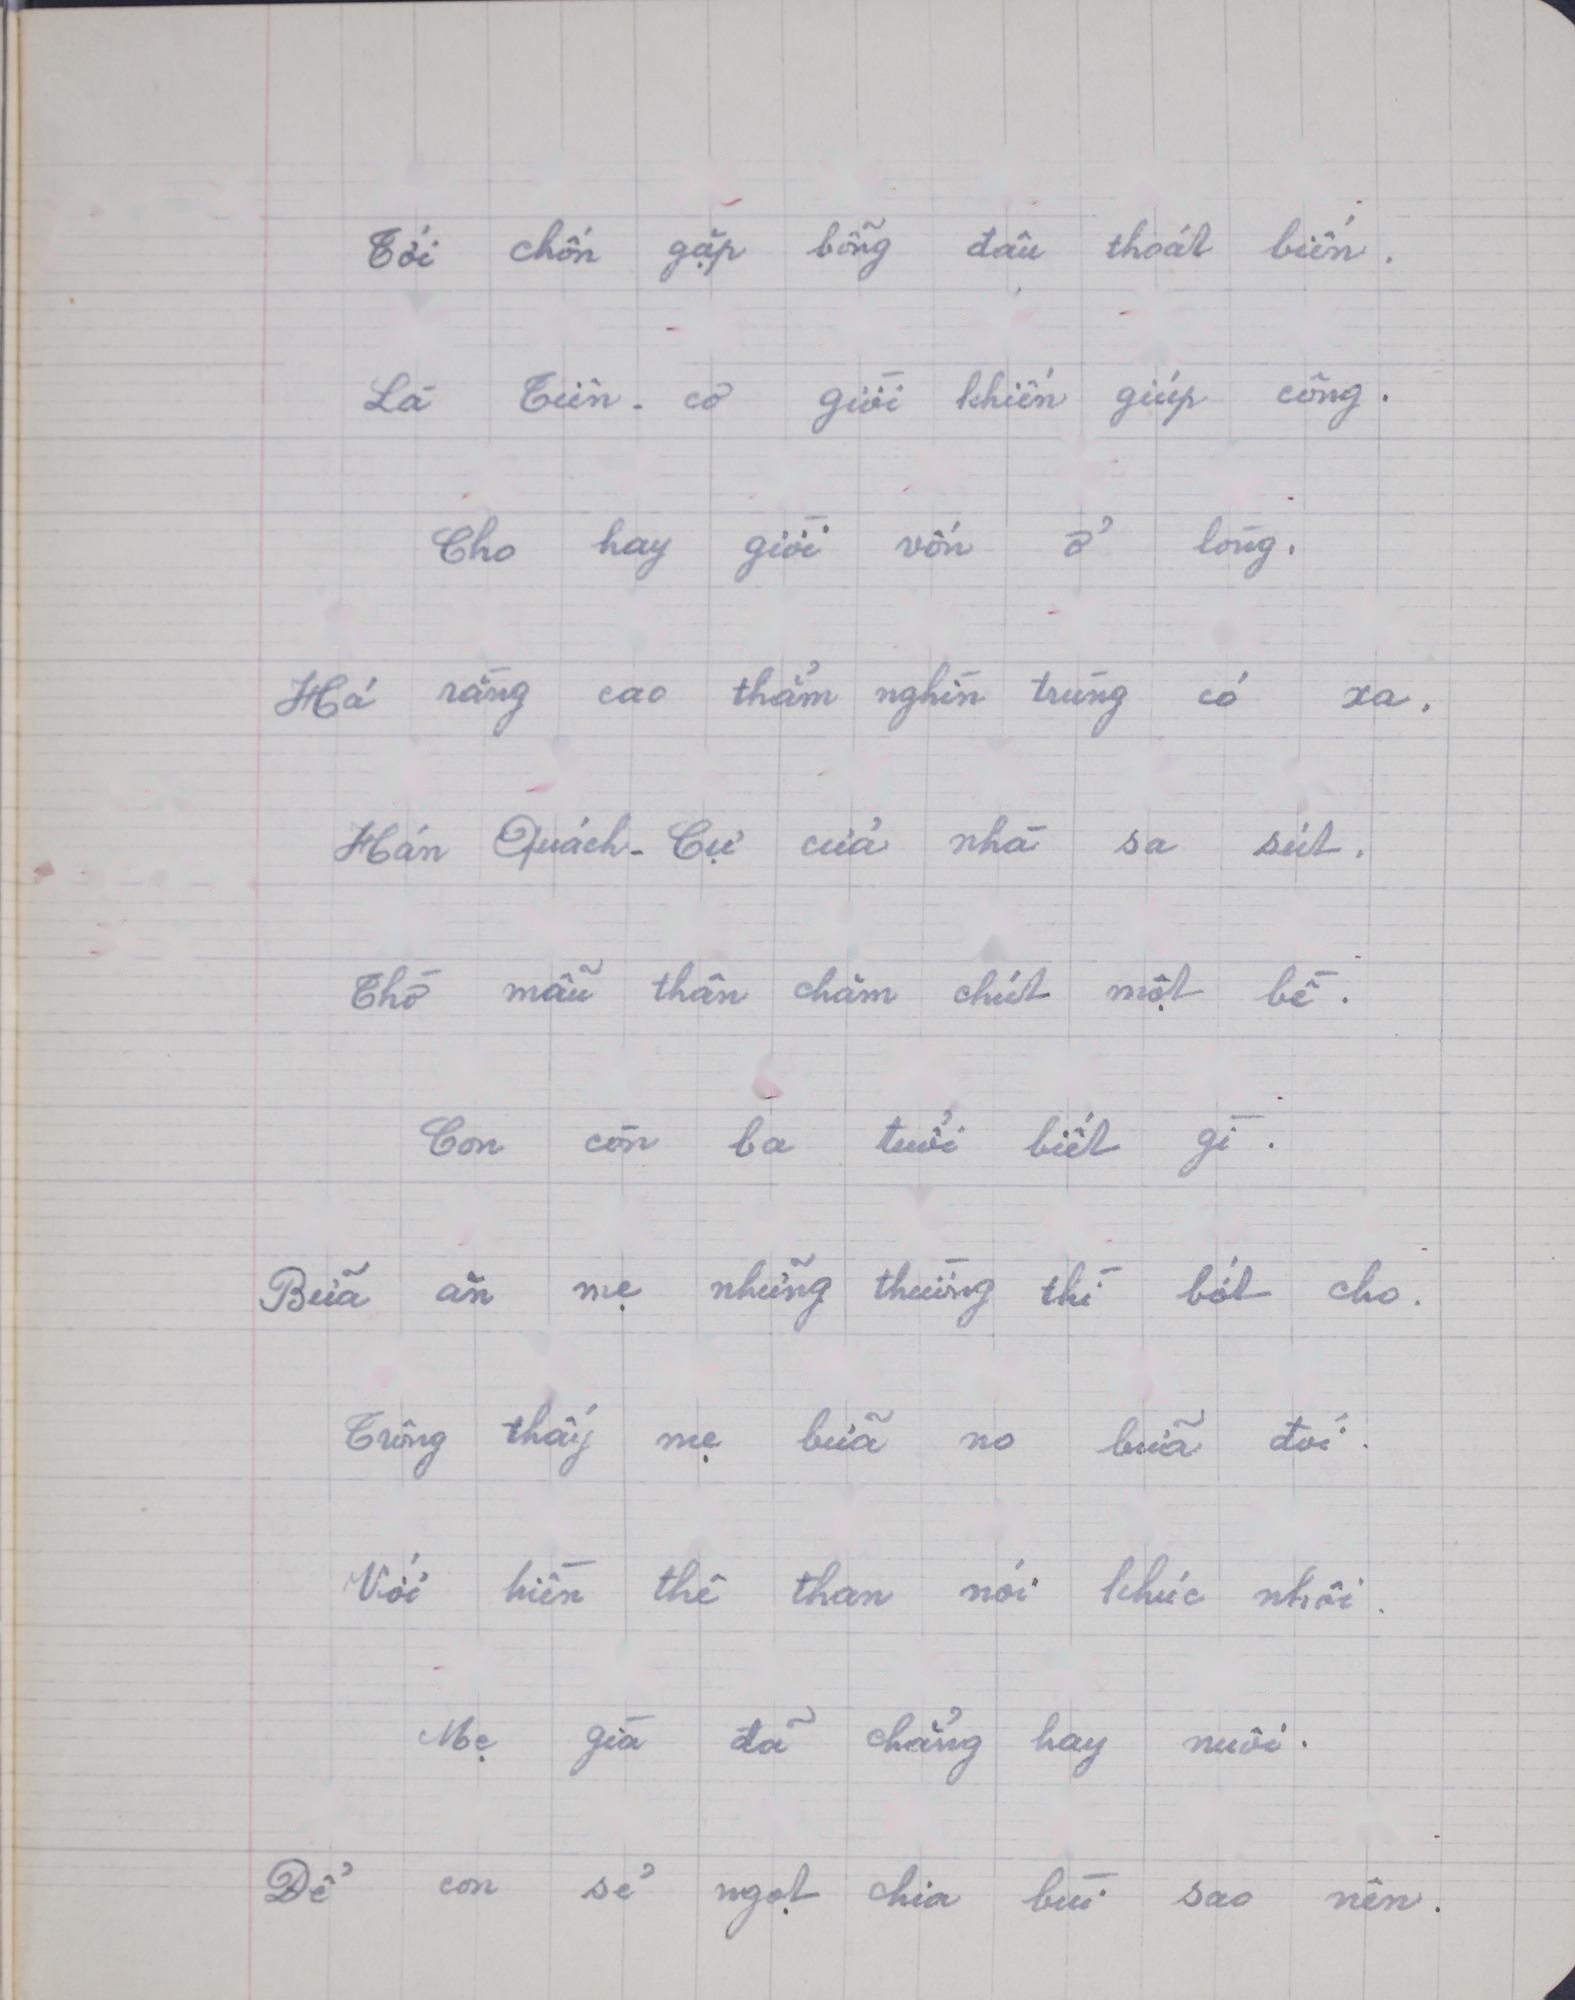 Tới chốn gặp bỗng đâu thoát biến.
Là Tiên-cơ giời khiến giúp công.
Cho hay giời vốn ở lòng.
Há rằng cao thẳm nghìn trùng có xa.
Hán Quách-Cự cửa nhà sa sút.
Thờ mẫu thân chăm chút một bề.
Con còn ba tuổi biết gì.
Bữa ăn mẹ những thường thì bớt cho.
Trông thấy mẹ bữa no bữa đói.
Với hiền thê than nói khúc nhôi.
Mẹ già đã chẳng hay nuôi.
Để con sẻ ngọt chia bùi sao nên.